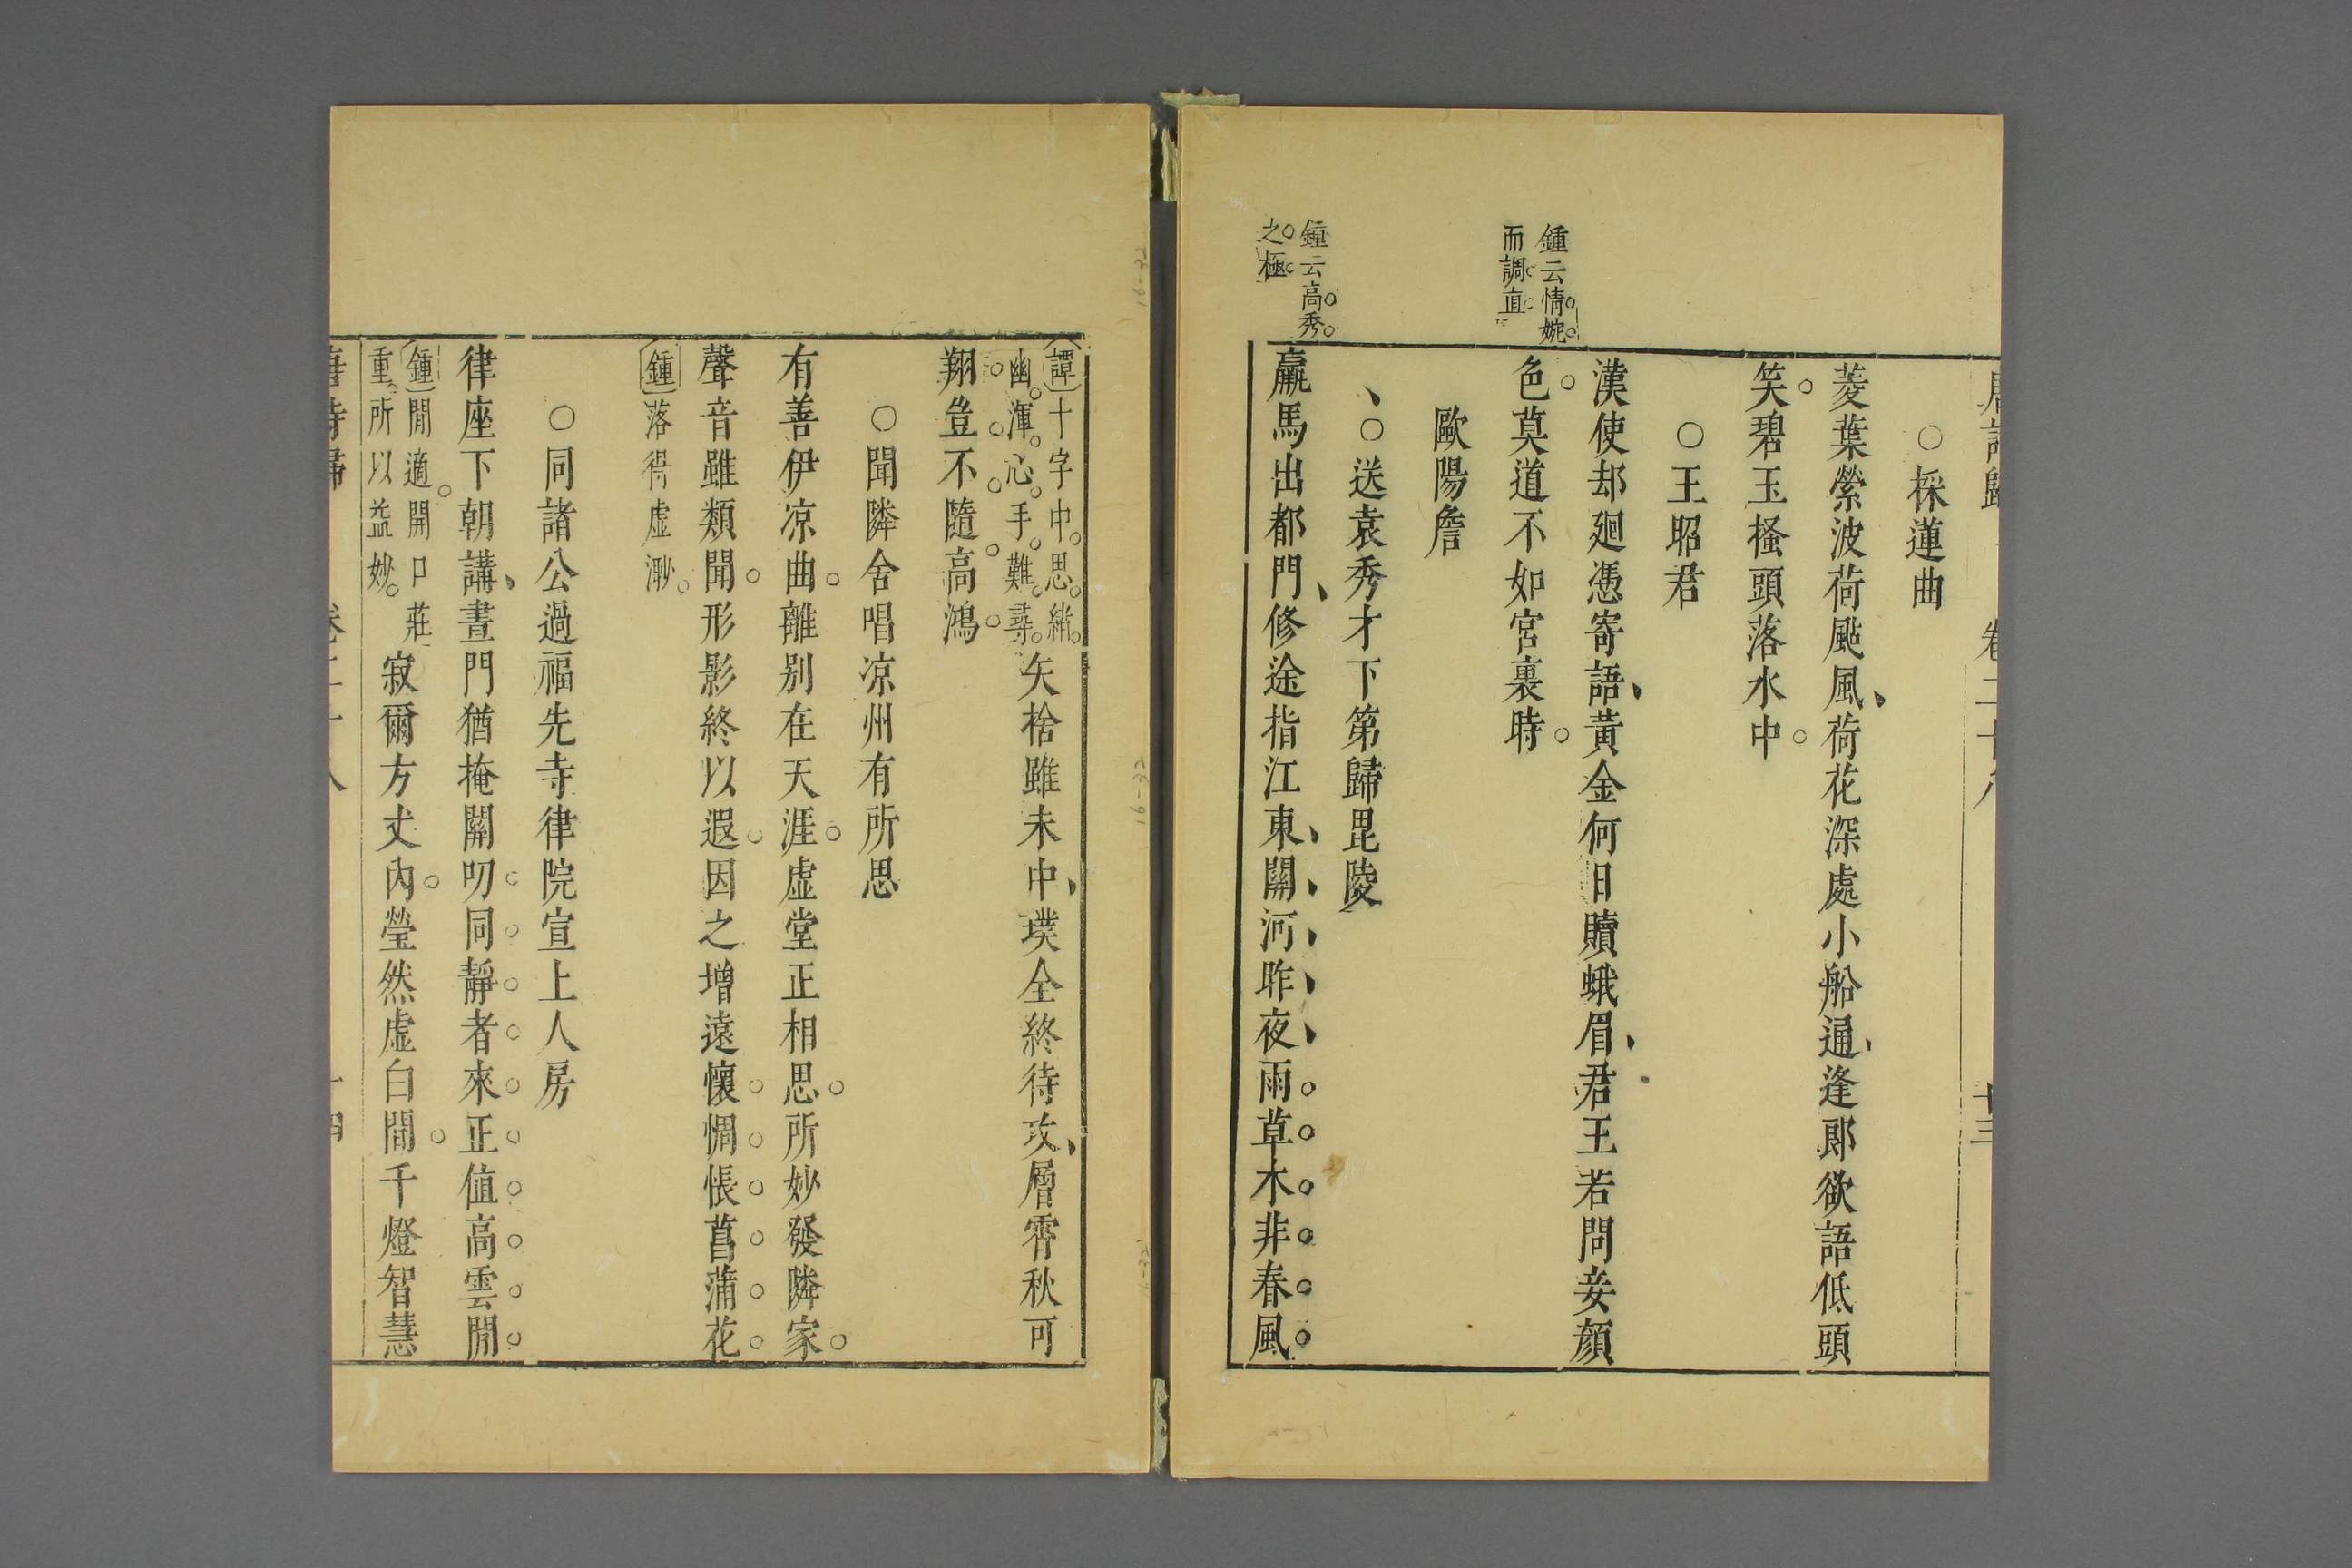 唐詩歸 卷二十八 十三
○採蓮曲
菱葉縈波荷颭風荷花深處小船通逢郎欲語低頭
笑碧玉搔頭落水中
○王昭君
漢使却廻憑寄語黃金何日贖蛾眉君王若問妾顏
鍾云情婉
而調直
色莫道不如宮裏時
歐陽詹
○送袁秀才下第歸毘陵
鍾云高秀
之極
羸馬出都門修途指江東關河昨夜雨草木非春風
譚十字中思緒
幽渾心手難尋
矢捨雖未中璞全終待攻層霄秋可
翔豈不隨高鴻
○聞隣舍唱凉州有所思
有善伊凉曲離别在天涯虛堂正相思所妙發隣家
聲音雖類聞形影終以遐因之增遠懷惆悵菖蒲花
鍾落得虛渺
○同諸公過福先寺律院宣上人房
律座下朝講晝門猶掩關叨同靜者來正值高雲閒
鍾閒適開口莊
重所以益妙
寂爾方丈内瑩然虛白間千燈智慧
唐詩歸 卷二十八 十四